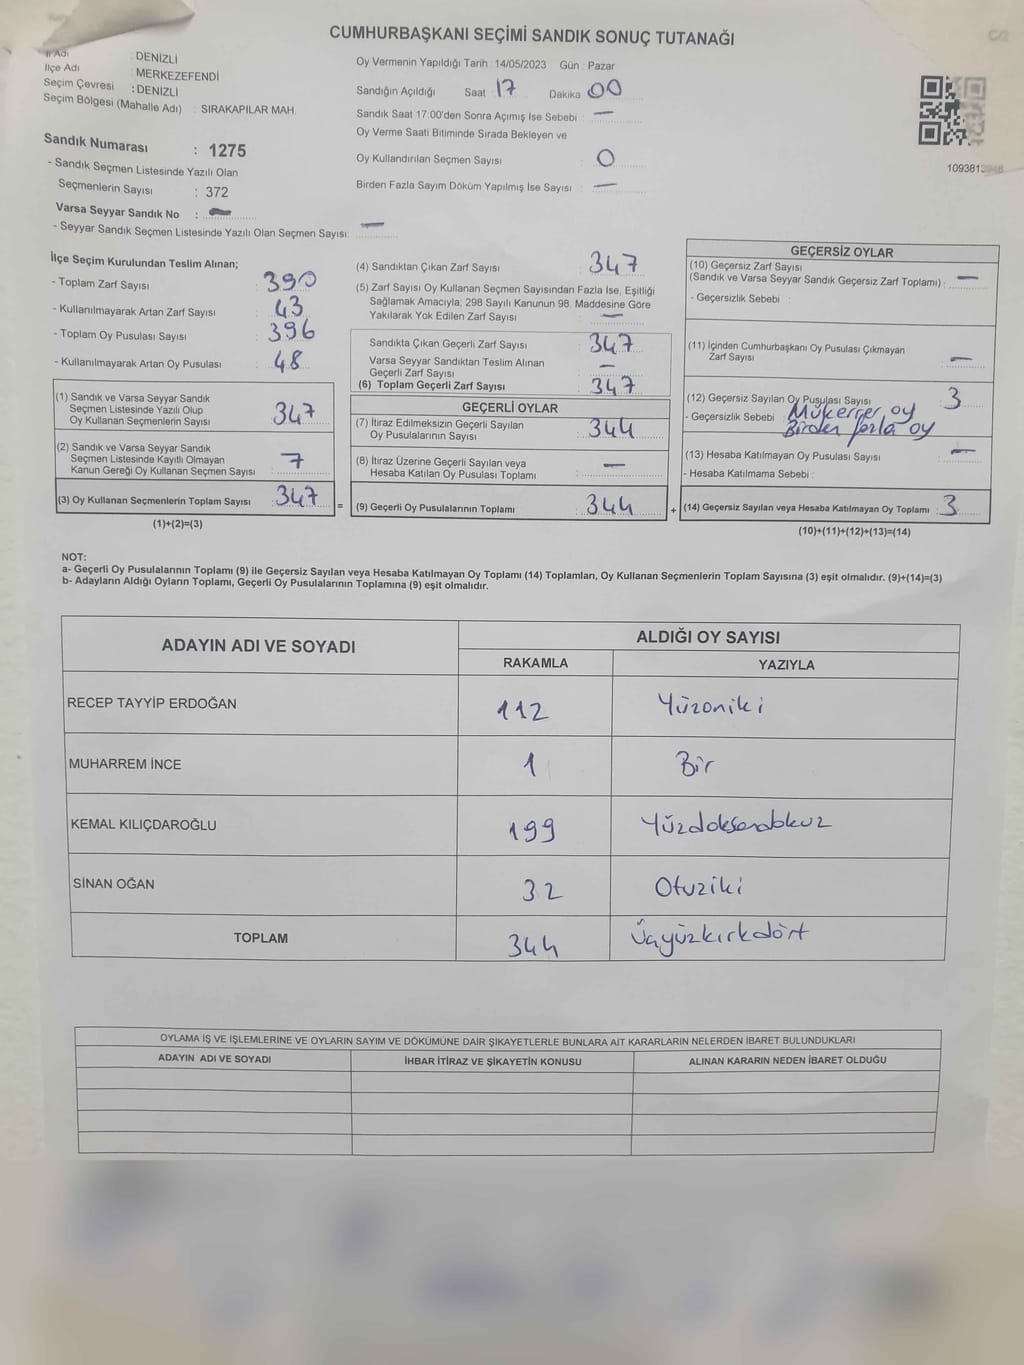 CUMHURBAŞKANI SEÇİMİ SANDIK SONUÇ TUTANAĞI
İl Adı : DENİZLİ
İlçe Adı : MERKEZEFENDİ
Seçim Çevresi : DENİZLİ
Seçim Bölgesi (Mahalle Adı) : SIRAKAPILAR MAH.
Sandık Numarası : 1275
- Sandık Seçmen Listesinde Yazılı Olan
Seçmenlerin Sayısı : 372
Varsa Seyyar Sandık No : —
- Seyyar Sandık Seçmen Listesinde Yazılı Olan Seçmen Sayısı: —
Oy Vermenin Yapıldığı Tarih :14/05/2023 Gün : Pazar
Sandığın Açıldığı Saat 17 Dakika 00
Sandık Saat 17:00'den Sonra Açımış İse Sebebi : —
Oy Verme Saati Bitiminde Sırada Bekleyen ve
Oy Kullandırılan Seçmen Sayısı : 0
Birden Fazla Sayım Döküm Yapılmış İse Sayısı : —
1093813
İlçe Seçim Kurulundan Teslim Alınan;
- Toplam Zarf Sayısı : 390
- Kullanılmayarak Artan Zarf Sayısı : 43
- Toplam Oy Pusulası Sayısı : 396
- Kullanılmayarak Artan Oy Pusulası : 48
(1) Sandık ve Varsa Seyyar Sandık
Seçmen Listesinde Yazılı Olup
Oy Kullanan Seçmenlerin Sayısı : 347
(2) Sandık ve Varsa Seyyar Sandık
Seçmen Listesinde Kayıtlı Olmayan
Kanun Gereği Oy Kullanan Seçmen Sayısı : 7
(3) Oy Kullanan Seçmenlerin Toplam Sayısı : 347
(1)+(2)=(3)
(4) Sandıktan Çıkan Zarf Sayısı : 347
(5) Zarf Sayısı Oy Kullanan Seçmen Sayısından Fazla İse, Eşitliği
Sağlamak Amacıyla; 298 Sayılı Kanunun 98. Maddesine Göre
Yakılarak Yok Edilen Zarf Sayısı : —
Sandıkta Çıkan Geçerli Zarf Sayısı : 347
Varsa Seyyar Sandıktan Teslim Alınan
Geçerli Zarf Sayısı : —
(6) Toplam Geçerli Zarf Sayısı : 347
GEÇERLİ OYLAR
(7) İtiraz Edilmeksizin Geçerli Sayılan
Oy Pusulalarının Sayısı : 344
(8) İtiraz Üzerine Geçerli Sayılan veya
Hesaba Katılan Oy Pusulası Toplamı : —
= (9) Geçerli Oy Pusulalarının Toplamı : 344
GEÇERSİZ OYLAR
(10) Geçersiz Zarf Sayısı
(Sandık ve Varsa Seyyar Sandık Geçersiz Zarf Toplamı) : —
- Geçersizlik Sebebi :
(11) İçinden Cumhurbaşkanı Oy Pusulası Çıkmayan
Zarf Sayısı : —
(12) Geçersiz Sayılan Oy Pusulası Sayısı : 3
- Geçersizlik Sebebi : Mükerrer, oy
Birden fazla oy
(13) Hesaba Katılmayan Oy Pusulası Sayısı : —
- Hesaba Katılmama Sebebi :
+ (14) Geçersiz Sayılan veya Hesaba Katılmayan Oy Toplamı : 3
(10)+(11)+(12)+(13)=(14)
NOT:
a- Geçerli Oy Pusulalarının Toplamı (9) ile Geçersiz Sayılan veya Hesaba Katılmayan Oy Toplamı (14) Toplamları, Oy Kullanan Seçmenlerin Toplam Sayısına (3) eşit olmalıdır. (9)+(14)=(3)
b- Adayların Aldığı Oyların Toplamı, Geçerli Oy Pusulalarının Toplamına (9) eşit olmalıdır.
ADAYIN ADI VE SOYADI
ALDIĞI OY SAYISI
RAKAMLA YAZIYLA
RECEP TAYYİP ERDOĞAN 112 Yüzoniki
MUHARREM İNCE 1 Bir
KEMAL KILIÇDAROĞLU 199 Yüzdoksandokuz
SİNAN OĞAN 32 Otuziki
TOPLAM 344 Üçyüzkırkdört
OYLAMA İŞ VE İŞLEMLERİNE VE OYLARIN SAYIM VE DÖKÜMÜNE DAİR ŞİKAYETLERLE BUNLARA AİT KARARLARIN NELERDEN İBARET BULUNDUKLARI
ADAYIN ADI VE SOYADI İHBAR İTİRAZ VE ŞİKAYETİN KONUSU ALINAN KARARIN NEDEN İBARET OLDUĞU